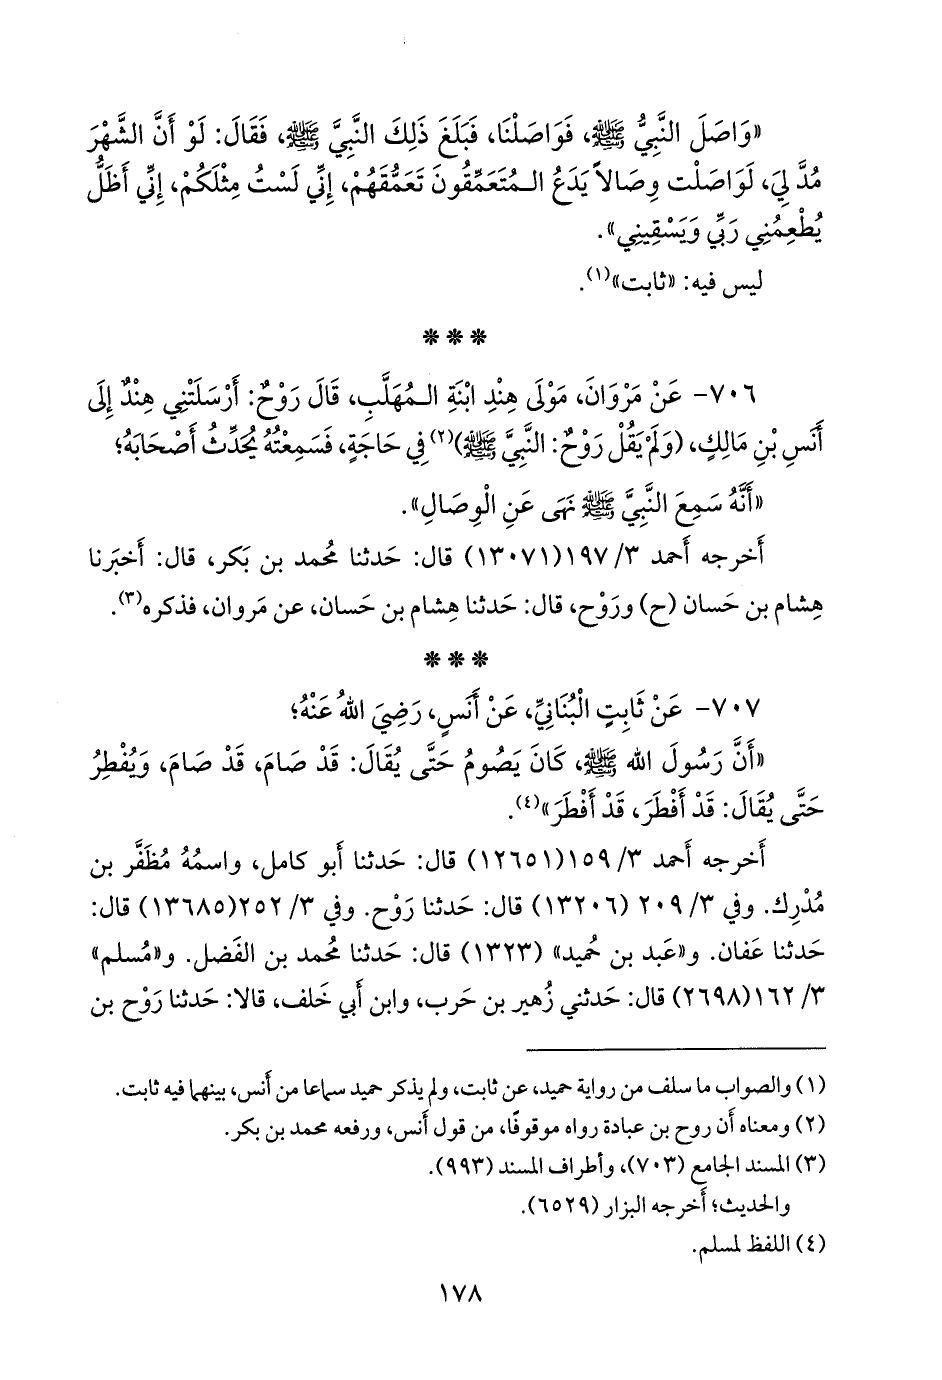 «وَاصَلَ النَّبِيُّ ﷺ، فَوَاصَلْنَا، فَبَلَغَ ذَلِكَ النَّبِيَّ ﷺ، فَقَالَ: لَوْ أَنَّ الشَّهْرَ
مُدَّ لِيَ، لَوَاصَلْت وِصَالاً يَدَعُ الـمُتَعَمِّقُونَ تَعَمُّقَهُمْ، إِنِّي لَسْتُ مِثْلَكُمْ، إِنِّي أَظَلُّ
يُطْعِمُنِي رَبِّي وَيَسْقِينِي».
ليس فيه: «ثابت»(١).
***
٧٠٦- عَنْ مَرْوَانَ، مَوْلَى هِنْدِ ابْنَةِ الـمُهَلَّبِ، قَالَ رَوْحٌ: أَرْسَلَتْنِي هِنْدٌ إِلَى
أَنَسِ بْنِ مَالِكٍ، (وَلَمْ يَقُلْ رَوْحٌ: النَّبِيَّ ﷺ)(٢) فِي حَاجَةٍ، فَسَمِعْتُهُ يُحَدِّثُ أَصْحَابَهُ؛
«أَنَّهُ سَمِعَ النَّبِيَّ ﷺ نَهَى عَنِ الْوِصَالِ».
أَخرجه أَحمد ٣/ ١٩٧(١٣٠٧١) قال: حَدثنا مُحمد بن بَكر، قال: أَخبَرنا
هِشام بن حَسان (ح) ورَوْح، قال: حَدثنا هِشام بن حَسان، عن مَروان، فذكره(٣).
***
٧٠٧- عَنْ ثَابِتٍ الْبُنَانِيِّ، عَنْ أَنَسٍ، رَضِيَ اللهُ عَنْهُ؛
«أَنَّ رَسُولَ الله ﷺ، كَانَ يَصُومُ حَتَّى يُقَالَ: قَدْ صَامَ، قَدْ صَامَ، وَيُفْطِرُ
حَتَّى يُقَالَ: قَدْ أَفْطَرَ، قَدْ أَفْطَرَ»(٤).
أَخرجه أَحمد ٣/ ١٥٩(١٢٦٥١) قال: حَدثنا أَبو كامل، واسمُهُ مُظَفَّر بن
مُدْرِك. وفي ٣/ ٢٠٩ (١٣٢٠٦) قال: حَدثنا رَوْح. وفي ٣/ ٢٥٢(١٣٦٨٥) قال:
حَدثنا عَفان. و«عَبد بن حُميد» (١٣٢٣) قال: حَدثنا مُحمد بن الفَضل. و«مُسلم»
٣/ ١٦٢(٢٦٩٨) قال: حَدثني زُهير بن حَرب، وابن أَبي خَلف، قالا: حَدثنا رَوْح بن
(١) والصواب ما سلف من رواية حميد، عن ثابت، ولم يذكر حميد سماعا من أَنس، بينهما فيه ثابت.
(٢) ومعناه أَن روح بن عبادة رواه موقوفًا، من قول أَنس، ورفعه محمد بن بكر.
(٣) المسند الجامع (٧٠٣)، وأطراف المسند (٩٩٣).
والحديث؛ أَخرجه البزار (٦٥٢٩).
(٤) اللفظ لمسلم.
١٧٨